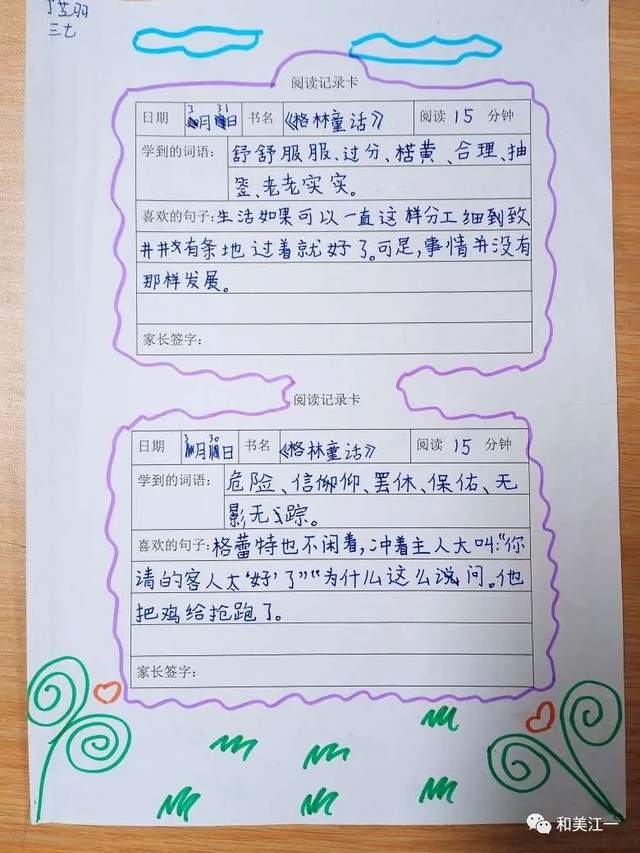 三七
阅读记录卡
日期 3月31日 书名 《格林童话》 阅读 15 分钟
学到的词语: 舒舒服服、过分、焦黄、合理、抽
空、老老实实。
喜欢的句子: 生活如果可以一直这样分工细到致
井井有条地过着就好了。可是,事情并没有
那样发展。
家长签字:
阅读记录卡
日期 3月30日 书名 《格林童话》 阅读 15 分钟
学到的词语: 危险、信仰、罢休、保佑、无
影无踪。
喜欢的句子: 格蕾特也不闲着,冲着主人大叫:“你
请的客人太‘好’了”“为什么这么说问。他
把鸡给抢跑了。
家长签字:
和美江一